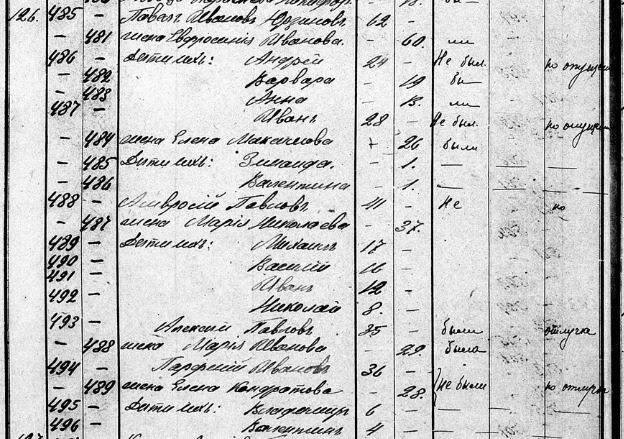 126. 485 — Павелъ Ивановъ Юдиновъ 62 —
— 481 жена Евфросинія Иванова. — 60.
486 — Дѣти ихъ: Андрей 24 — Не былъ по отлуч
— 482 Варвара — 19
— 483 Анна — 13.
487 — Иванъ 28 — Не былъ по отлуч
— 484 жена Елена Максимова — 26 были
— 485 Дѣти ихъ: Зинаида. — 1. — —
— 486 Валентина — 1. — —
488 — Амвросій Павловъ 41 — Не по
— 487 жена Марія Николаева — 37.
489 — Дѣти ихъ: Михаилъ 17 —
490 — Василій 16 —
491 — Иванъ 12 —
492 — Николай 8. —
493 — Алексѣй Павловъ 35 — были отлучка
— 488 жена Марія Иванова — 29. была
494 — Парфеній Ивановъ 36 —
— 489 жена Елена Кондратова — 28. Не были по отлуч
495 — Дѣти ихъ: Владимиръ 6 — — —
496 — Валентинъ 4 — — —